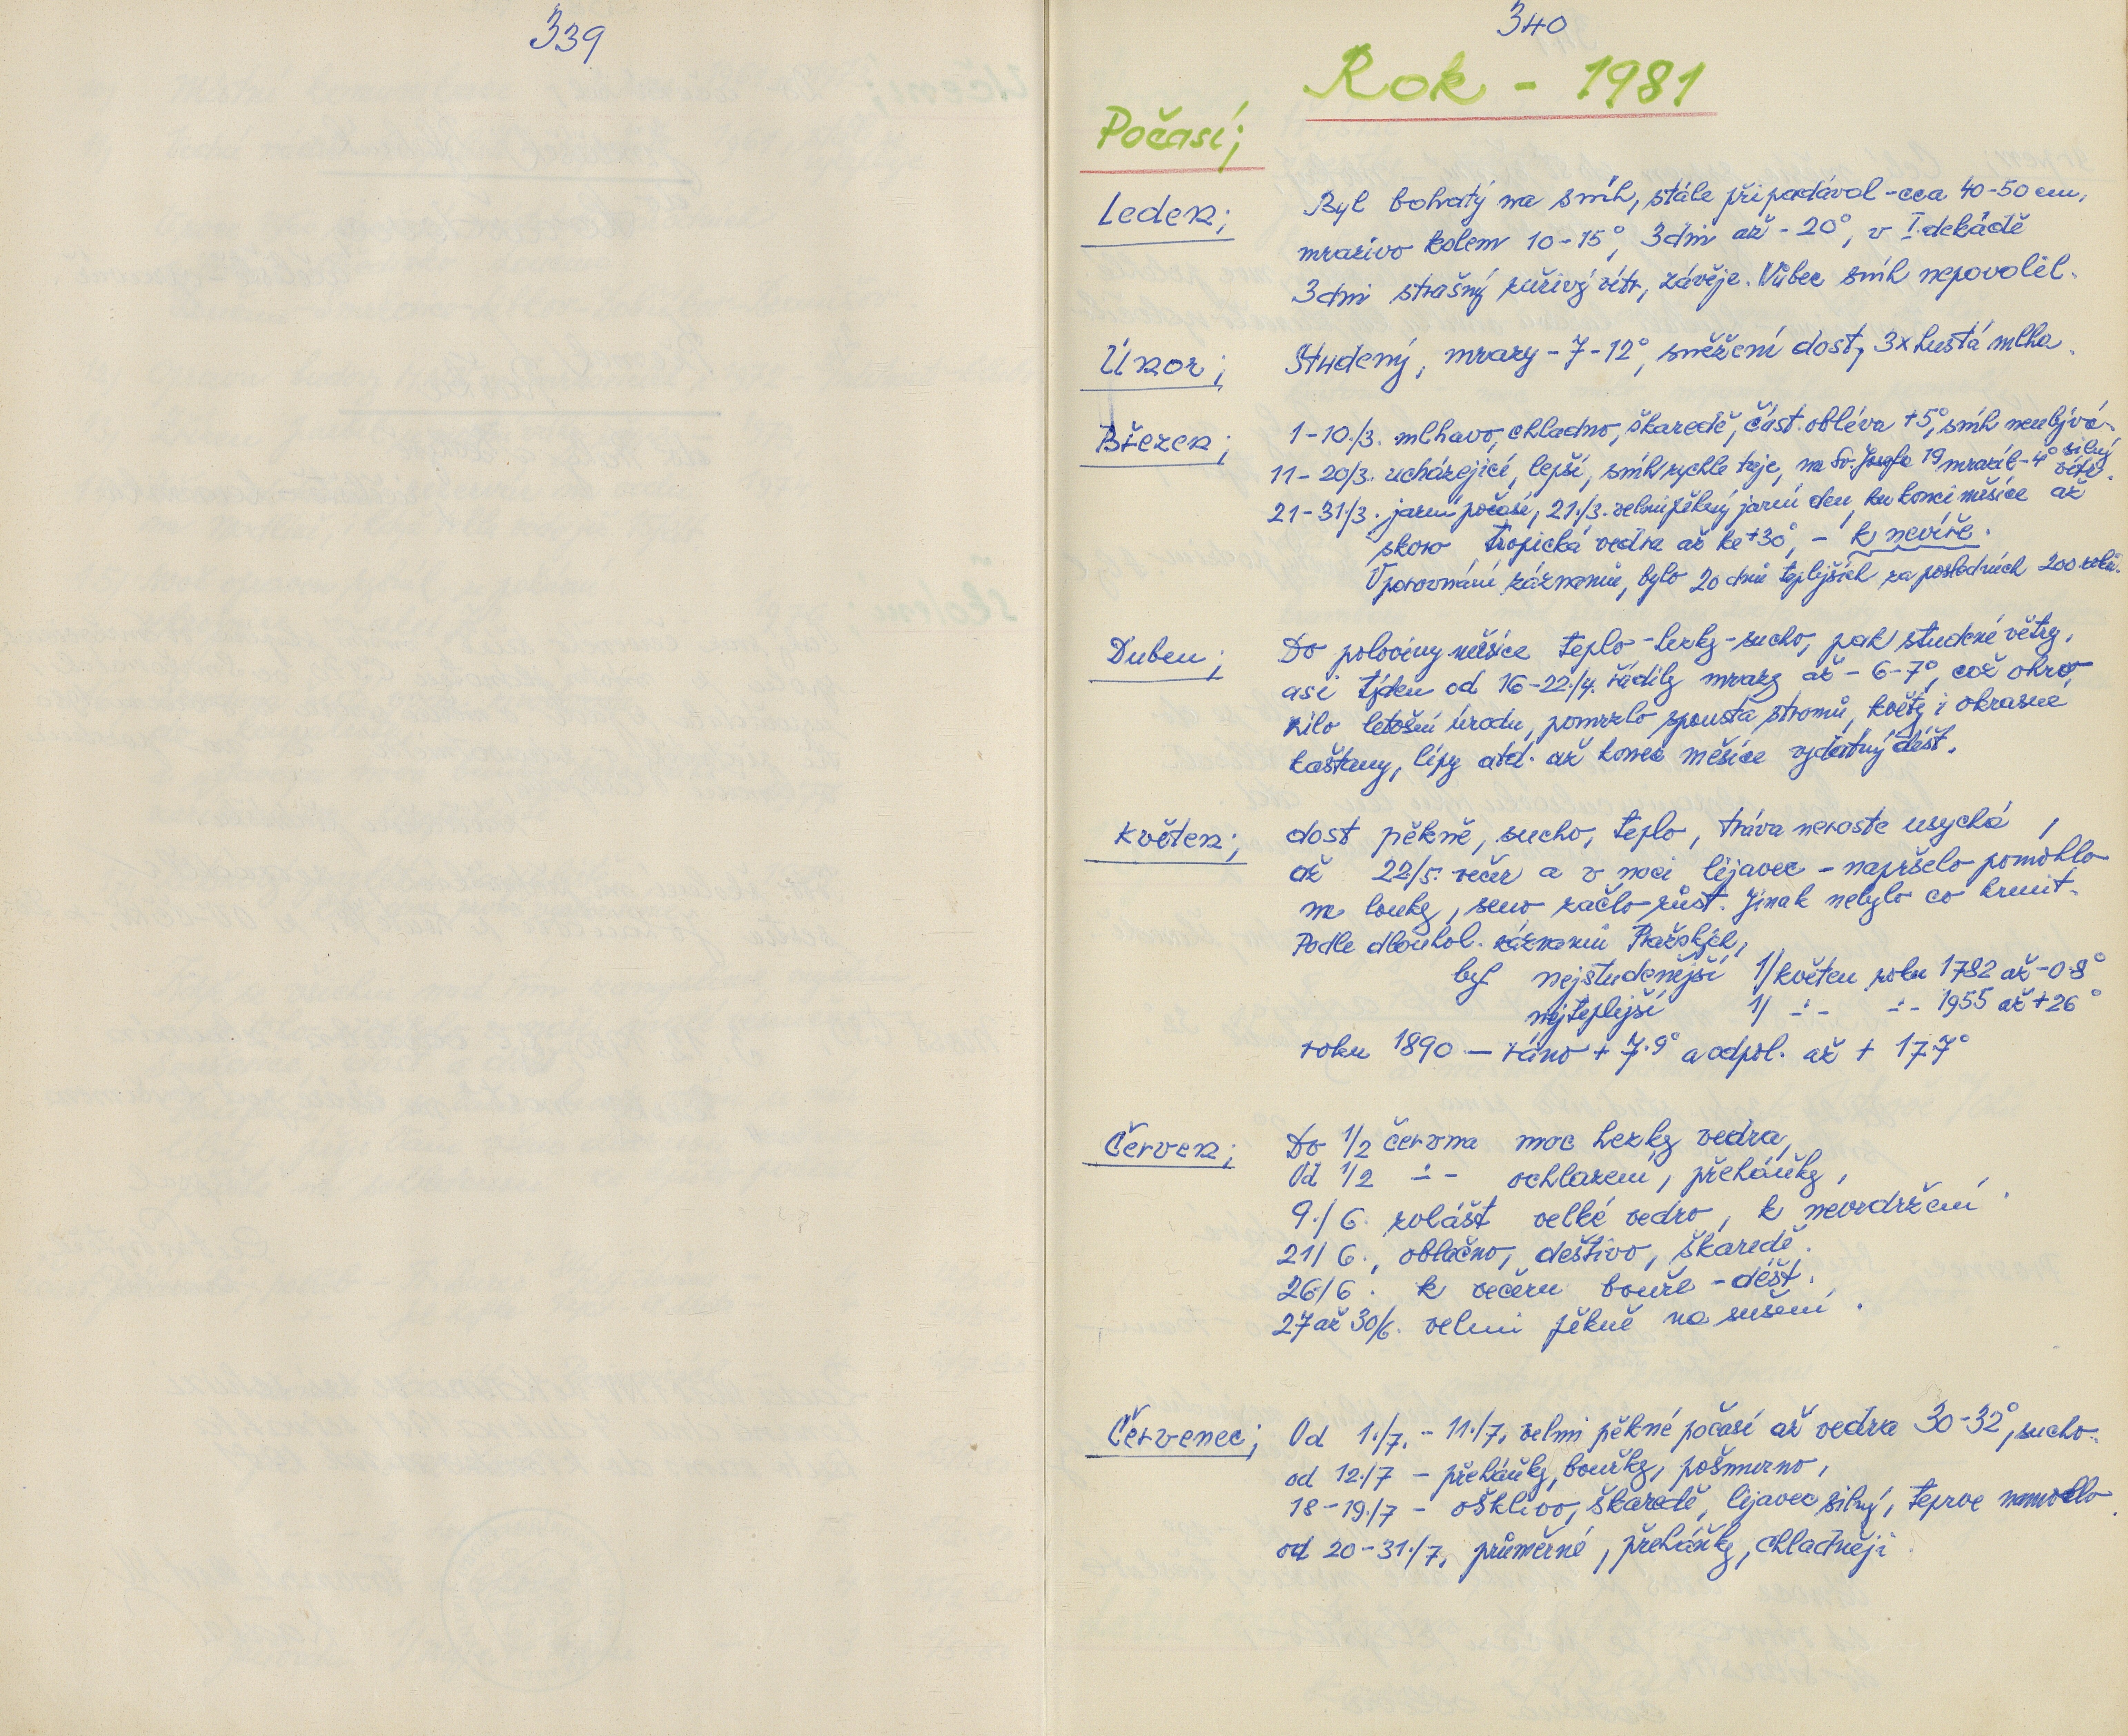 339
340
Rok - 1981
Počasí;
Leden; Byl bohatý na sníh, stále připadával - cca 40-50 cm,
mrazivo kolem 10-15°, 3 dni až - 20°, v I. dekádě
3 dni strašný zuřivý vítr, závěje. Vůbec sníh nepovolil.
Únor; Studený, mrazy - 7 - 12°, sněžení dost, 3x hustá mlha.
Březen; 1-10./3. mlhavo, chladno, škaredě, část. obléva +5°, sníh neubývá.
11-20/3. ucházející, lepší, sníh rychle taje, na Sv. Josefa 19 mrazil - 4° silný vítr.
21-31/3. jarní počasí, 21./3. velmi pěkný jarní den, ku konci měsíce až
skoro tropická vedra až ke +30°, - k nevíře.
V porovnání záznamů, bylo 20 dnů teplejších za posledních 200 roků.
Duben; Do poloviny měsíce teplo - hezky - sucho, pak studené větry,
asi týden od 16-22./4. řádily mrazy až - 6-7°, což ohro,
zilo letošní úrodu, pomrzlo spousta stromů, květy i okrasné
kaštany, lípy atd. až konec měsíce vydatný déšť.
Květen; dost pěkně, sucho, teplo, tráva neroste usychá,
až 22/5. večer a v noci lijavec - napršelo pomohlo
na louky, seno začlo růst. Jinak nebylo co krmit.
Podle dlouhol. záznamů Pražských,
byl nejstudenější 1/ květen roku 1782 až -0.8°
nejteplejší 1/ -:- -:- 1955 až +26°
roku 1890 - ráno + 7.9° a odpol. až + 17.7°
Červen; Do 1/2 června moc hezky vedra,
Od 1/2 -:- ochlazení, přeháňky,
9./6. zvlášť velké vedro, k nevydržení.
21/6., oblačno, deštivo, škaredě.
26/6. k večeru bouře - déšť.
27 až 30/6. velmi pěkně na sušení.
Červenec; Od 1./7. - 11./7. velmi pěkné počasí až vedra 30-32°, sucho.
od 12./7 - přeháňky, bouřky, pošmurno,
18-19./7 - ošklivo, škaredě, lijavec silný, teprve namoklo.
od 20-31./7. průměrné, přeháňky, chladněji